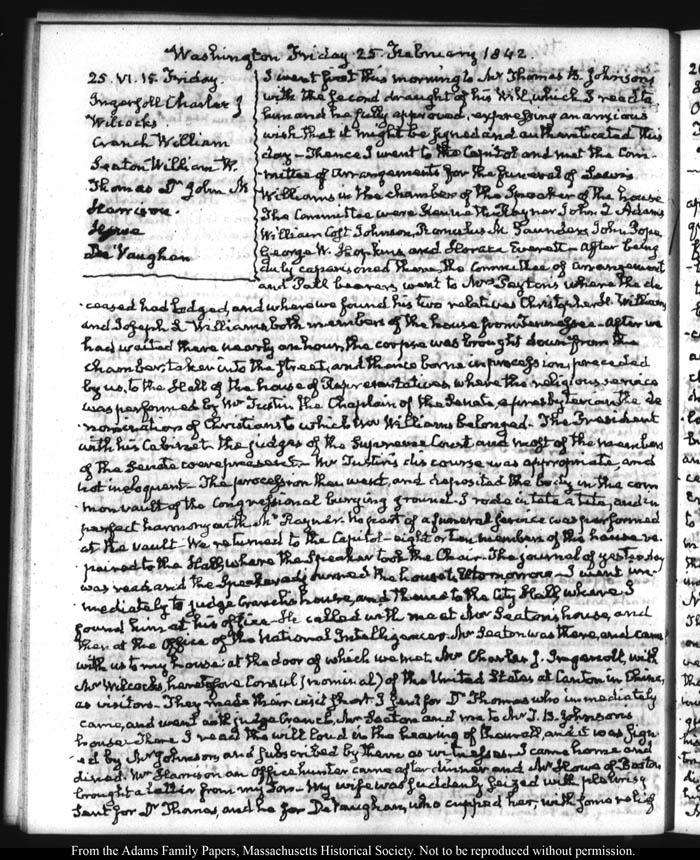 Washington Friday 25. February 1842.
25. VI. 15. Friday.
Ingersoll Charles J
Wilcocks
Cranch William
Seaton William W.
Thomas Dr John M
Harrison.
Howe
De Vaughan
I went first this morning to Mr Thomas B. Johnson's
with the second draught of his Will, which I read to
him and he fully approved, expressing an anxious
wish that it might be signed and authenticated this
day - Thence I went to the Capitol and met the Com-
-mittee of arrangements for the funeral of Lewis
Williams in the chamber of the Speaker of the house
The Committee were Kenneth Rayner, John Q Adams
William Cost Johnson, Romulus M. Saunders, John Pope,
George W. Hopkins, and Horace Everett - After being
duly caparisoned there, the Committee of arrangement
and Pall bearers went to Mrs Peyton's where the de
-ceased had lodged, and where we found his two relatives Christopher H. Williams
and Joseph L Williams, both members of the house from Tennessee - After we
had waited there nearly an hour, the corpse was brought down from the
chamber, taken into the street, and thence borne in procession, preceded
by us, to the Hall of the house of Representatives, where the religious service
was performed by Mr Tustin the Chaplain of the Senate, a presbyterian the de
-nomination of Christians to which Mr Williams belonged. The President
with his Cabinet - the judges of the Supreme Court and most of the members
of the Senate were present - Mr Tustin's discourse was appropriate, and
not ineloquent - The procession then went, and deposited the body in the com
-mon vault of the Congressional burying ground. I rode in tete a tete, and in
perfect harmony with Mr Rayner. No part of a funeral service was performed
at the vault - We returned to the Capitol - eight or ten members of the house re-
-paired to the Hall, where the Speaker took the Chair - The journal of yesterday
was read and the Speaker adjourned the house till to morrow - I went im-
-mediately to judge Cranch's house, and thence to the City Hall, where I
found him at his office - He called with me at Mr Seaton's house, and
then at the Office of the National Intelligencer. Mr Seaton was there, and came
with us to my house at the door of which we met Mr Charles J. Ingersoll, with
Mr Wilcocks, heretofore Consul (nominal) of the United States at Canton in China,
as visitors. They made their visit short. I sent for Dr Thomas who immediately
came, and went with judge Cranch, Mr Seaton and me to Mr T. B. Johnson's
house - There I read the will loud in the hearing of them all, and it was sign
-ed by Mr Johnson, and subscribed by them as witnesses. I came home and
dined. Mr Harrison an Office hunter came after dinner and Mr Howe of Boston
brought a letter from my Son - My wife was suddenly seized with pleurisy
Sent for Dr Thomas, and he for De Vaughan, who cupped her, with some relief
From the Adams Family Papers, Massachusetts Historical Society. Not to be reproduced without permission.